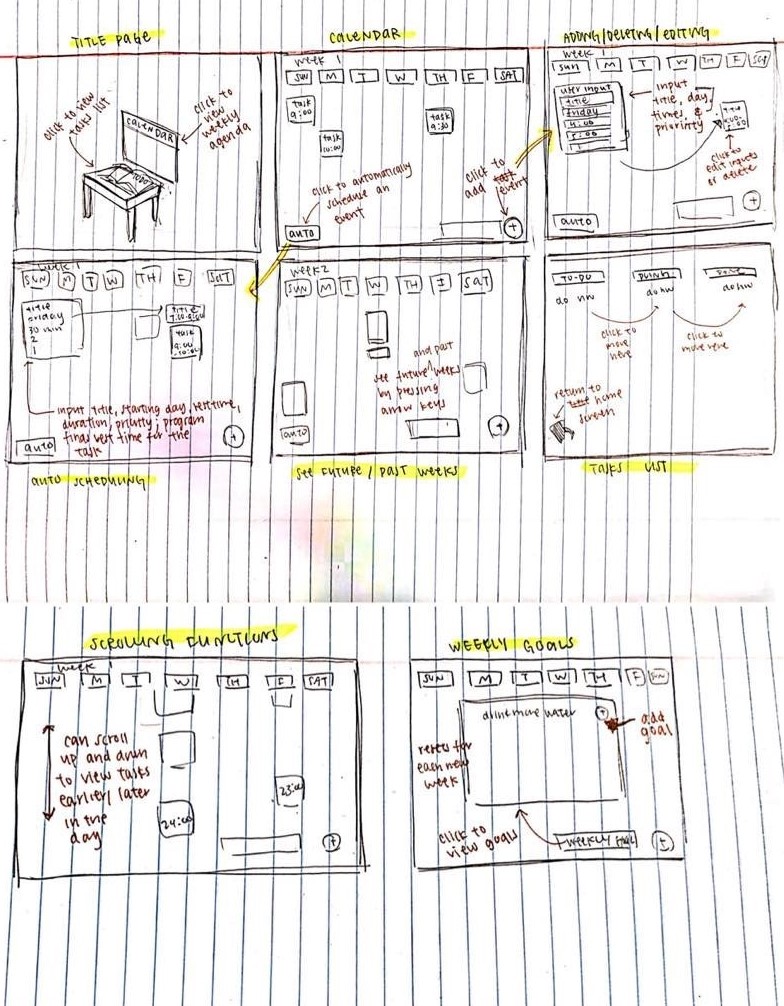 TITLE PAGE
click to view
tasks list
CALENDAR
click to
view
weekly
agenda
CALENDAR
week 1
SUN M T W TH F SAT
task
9:00
task
10:00
task
9:30
click to automatically
schedule an
event
click to
add task
event
auto
+
ADDING/DELETING/EDITING
week 1
SUN M T W TH F SAT
user input
title
friday
4:00
5:00
1
input
title, day,
times, &
priority
title
click to
edit inputs
or delete
auto
+
week 1
SUN M T W TH F SAT
title
friday
30 min
2
1
title
task
9:00
-10:00
input title, starting day, rest time,
duration, priority; program
finds best time for the
task
auto
+
AUTO SCHEDULING
week 2
SUN M T W TH F SAT
and past
see future weeks
by pressing
arrow keys
auto
+
SEE FUTURE / PAST WEEKS
TO-DO DOING DONE
do hw do hw do hw
click to
move
here
click to
move here
return to
home
screen
TASKS LIST
SCROLLING FUNCTIONS
week 1
SUN M T W TH F SAT
can scroll
up and down
to view tasks
earlier/later
in the
day
24:00
23:00
+
WEEKLY GOALS
SUN M T W TH F SUN
drink more water
+
add
goal
resets for
each new
week
click to
view goals
weekly goal
+